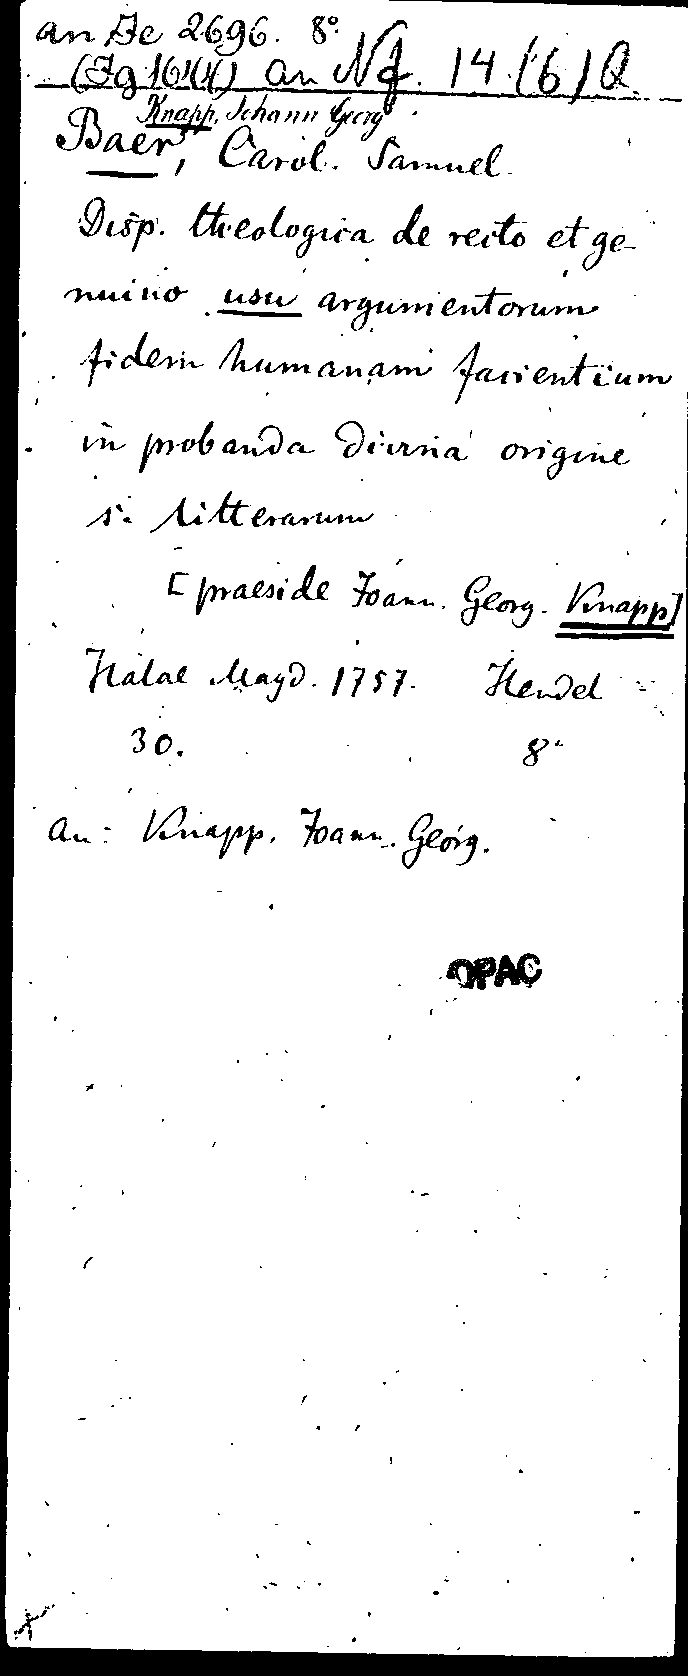 an Je 2696. 8°
an Nf. 14 (6) Q
Knapp, Johann Georg
Baer, Carol. Samuel
Disp. theologica de recto et ge-
nuino usu argumentorum
fidem humanam facientium
in probanda divina origine
s. litterarum
[praeside Joann. Georg. Knapp]
Halae Magd. 1757. Hendel
30. 8°
an: Knapp, Joann. Georg.
OPAC